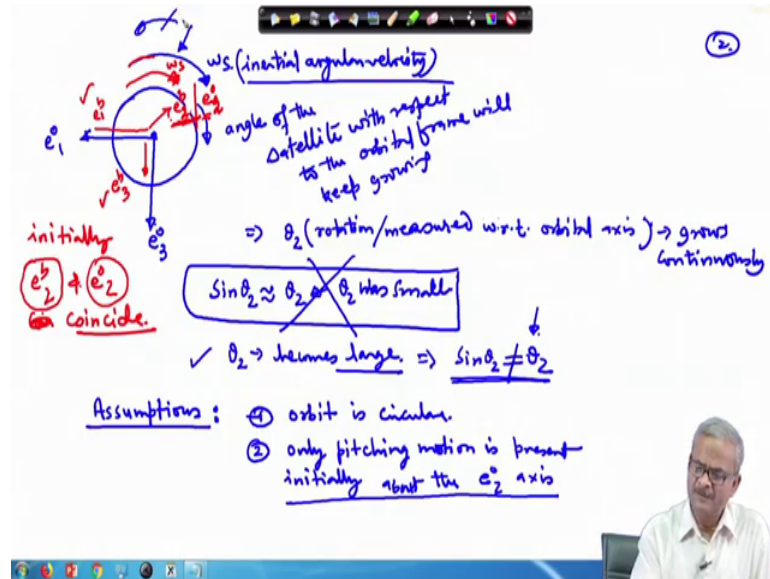 2.
ωs (inertial angular velocity)
ωs
e₁ᵇ
e₂ᵇ
e₂⁰
e₁⁰
e₃ᵇ
e₃⁰
angle of the
satellite with respect
to the orbital frame will
keep growing
⇒ θ₂ (rotation/measured w.r.t. orbital axis) → grows
continuously
initially
e₂ᵇ & e₂⁰
coincide.
Sinθ₂ ≈ θ₂ θ₂ was small
✓ θ₂ → becomes large. ⇒ Sinθ₂ ≠ θ₂
Assumptions : ① orbit is circular.
② only pitching motion is present
initially about the e₂⁰ axis